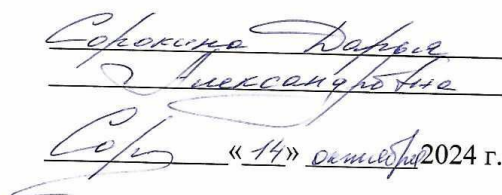 Сорокина Дарья
Александровна
Сор «14» октября 2024 г.